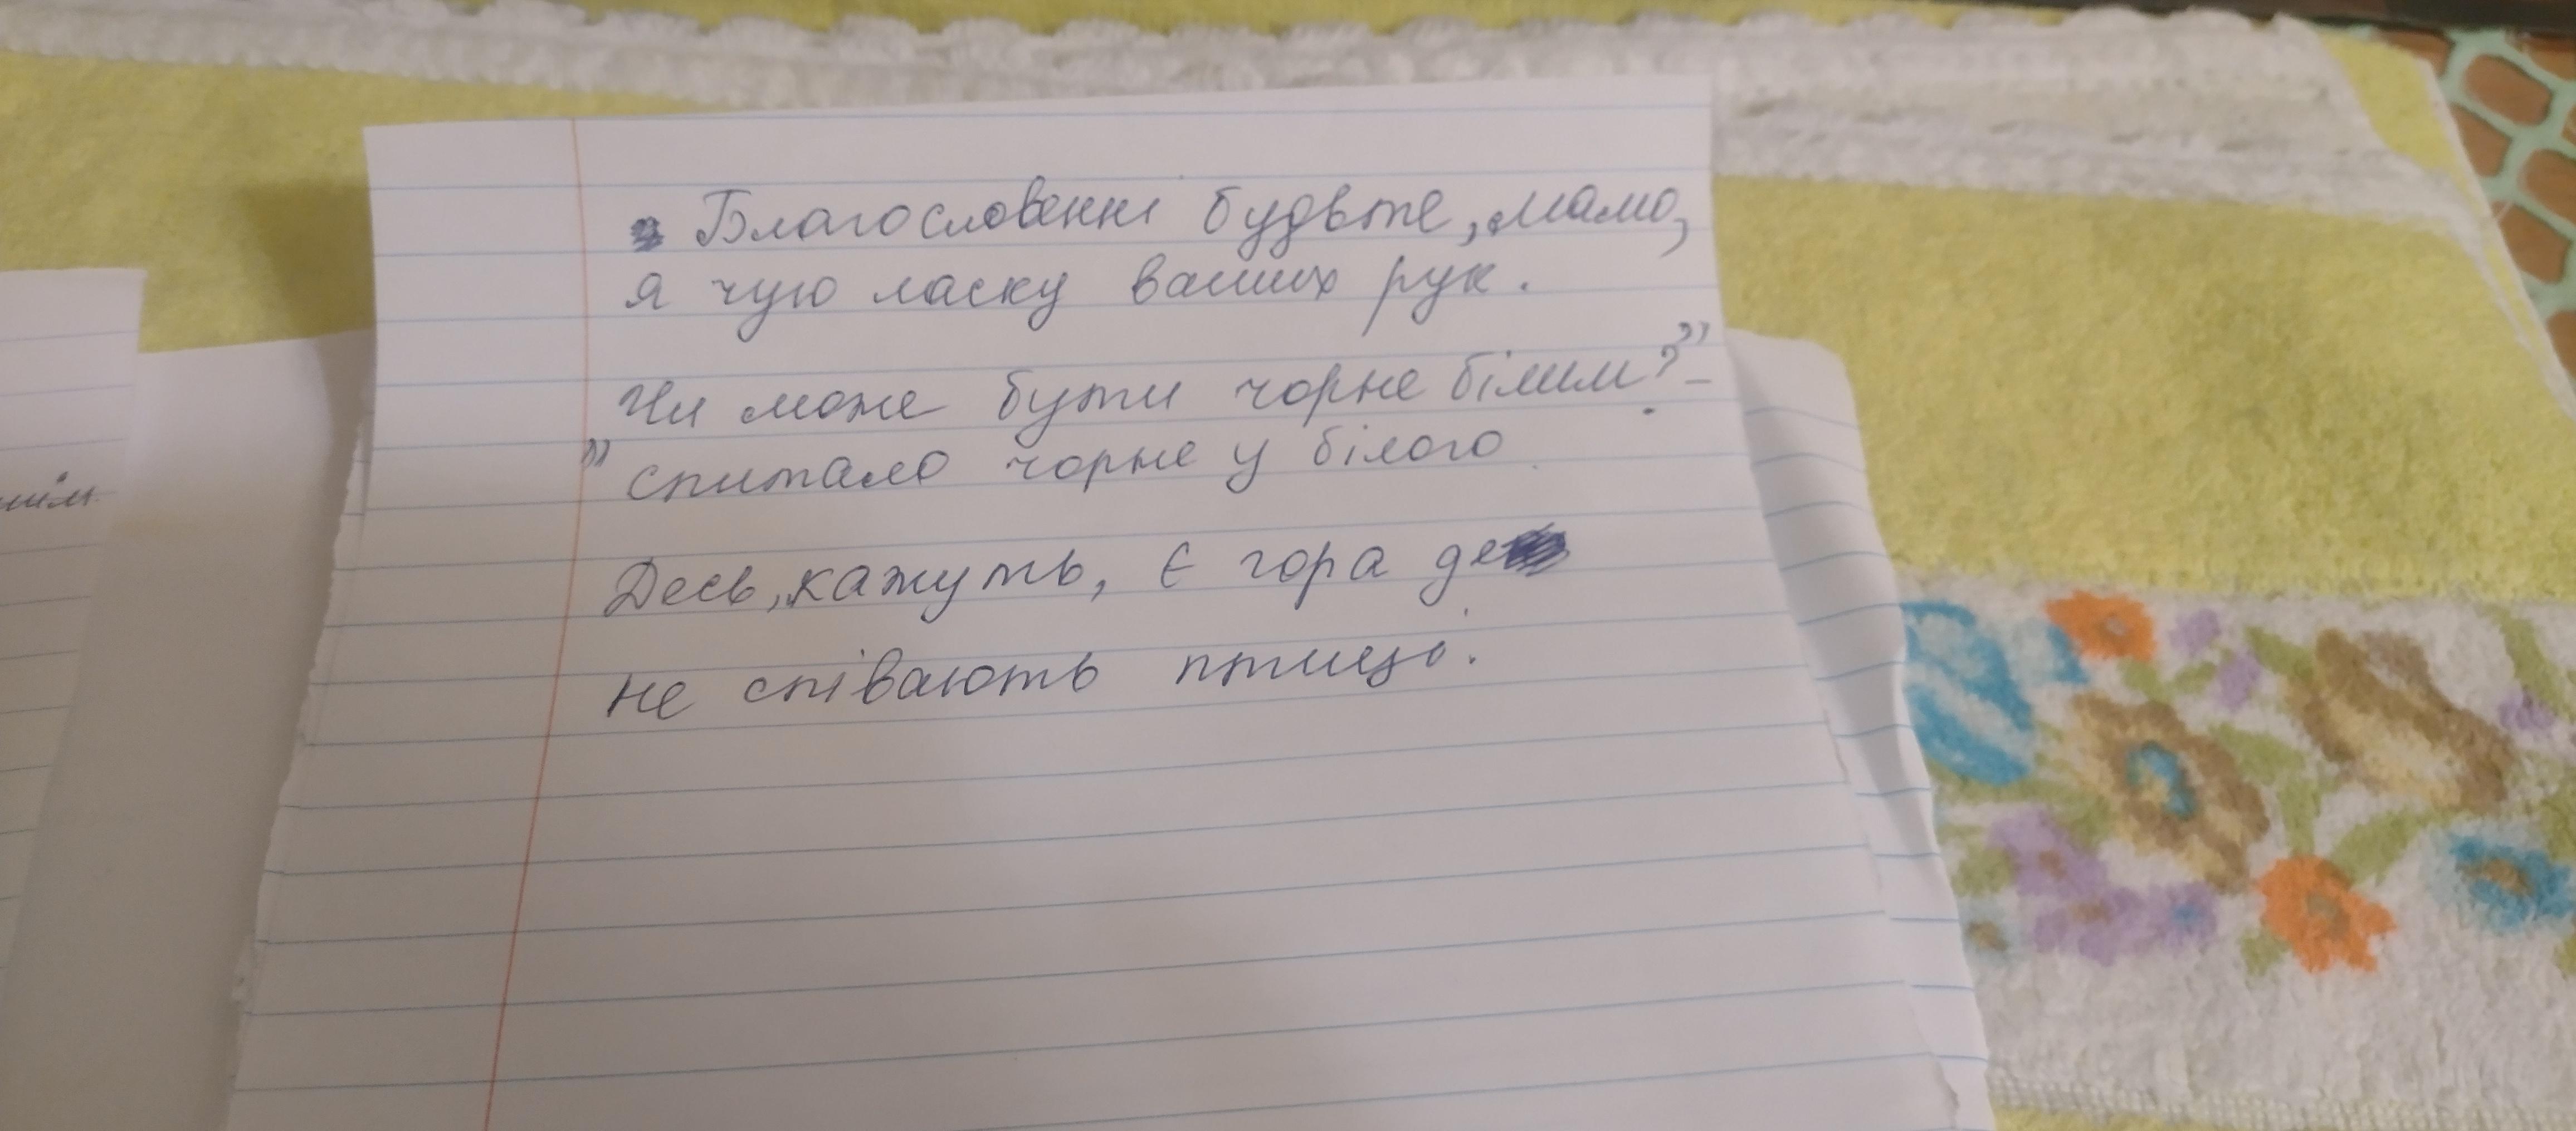 Благословенні будьте, мамо,
я чую ласку ваших рук.
Чи може бути чорне білим?" –
" спитало чорне у білого
Десь, кажуть, є гора де
не співають птиці.